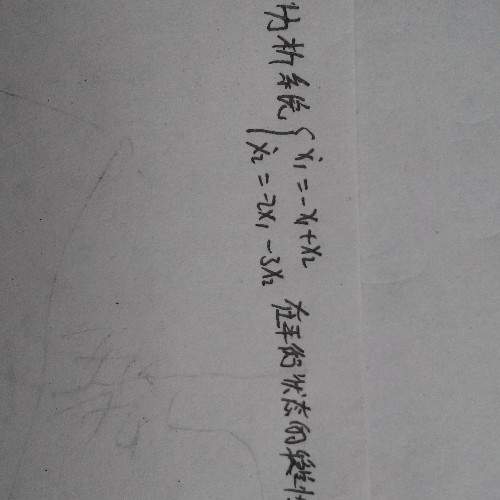 分析系统{ẋ₁=-x₁+x₂
ẋ₂=-2x₁-3x₂ 在平衡状态的稳定性